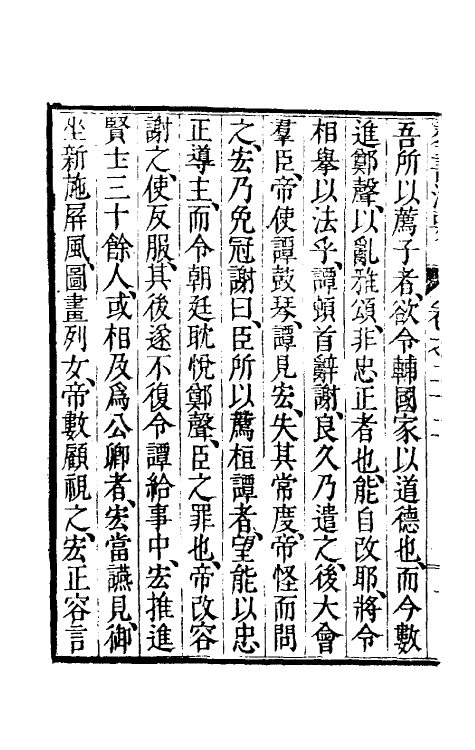 吾所以薦子者、欲令輔國家以道德也、而今數
進鄭聲、以亂雅頌、非忠正者也、能自改耶、將令
相舉以法乎、譚頓首辭謝、良久乃遣之、後大會
羣臣、帝使譚鼓琴、譚見宏、失其常度、帝怪而問
之、宏乃免冠謝曰、臣所以薦桓譚者、望能以忠
正導主、而令朝廷耽悅鄭聲、臣之罪也、帝改容
謝之、使反服、其後遂不復令譚給事中、宏推進
賢士三十餘人、或相及爲公卿者、宏當讌見、御
坐新施屏風、圖畫列女、帝數顧視之、宏正容言